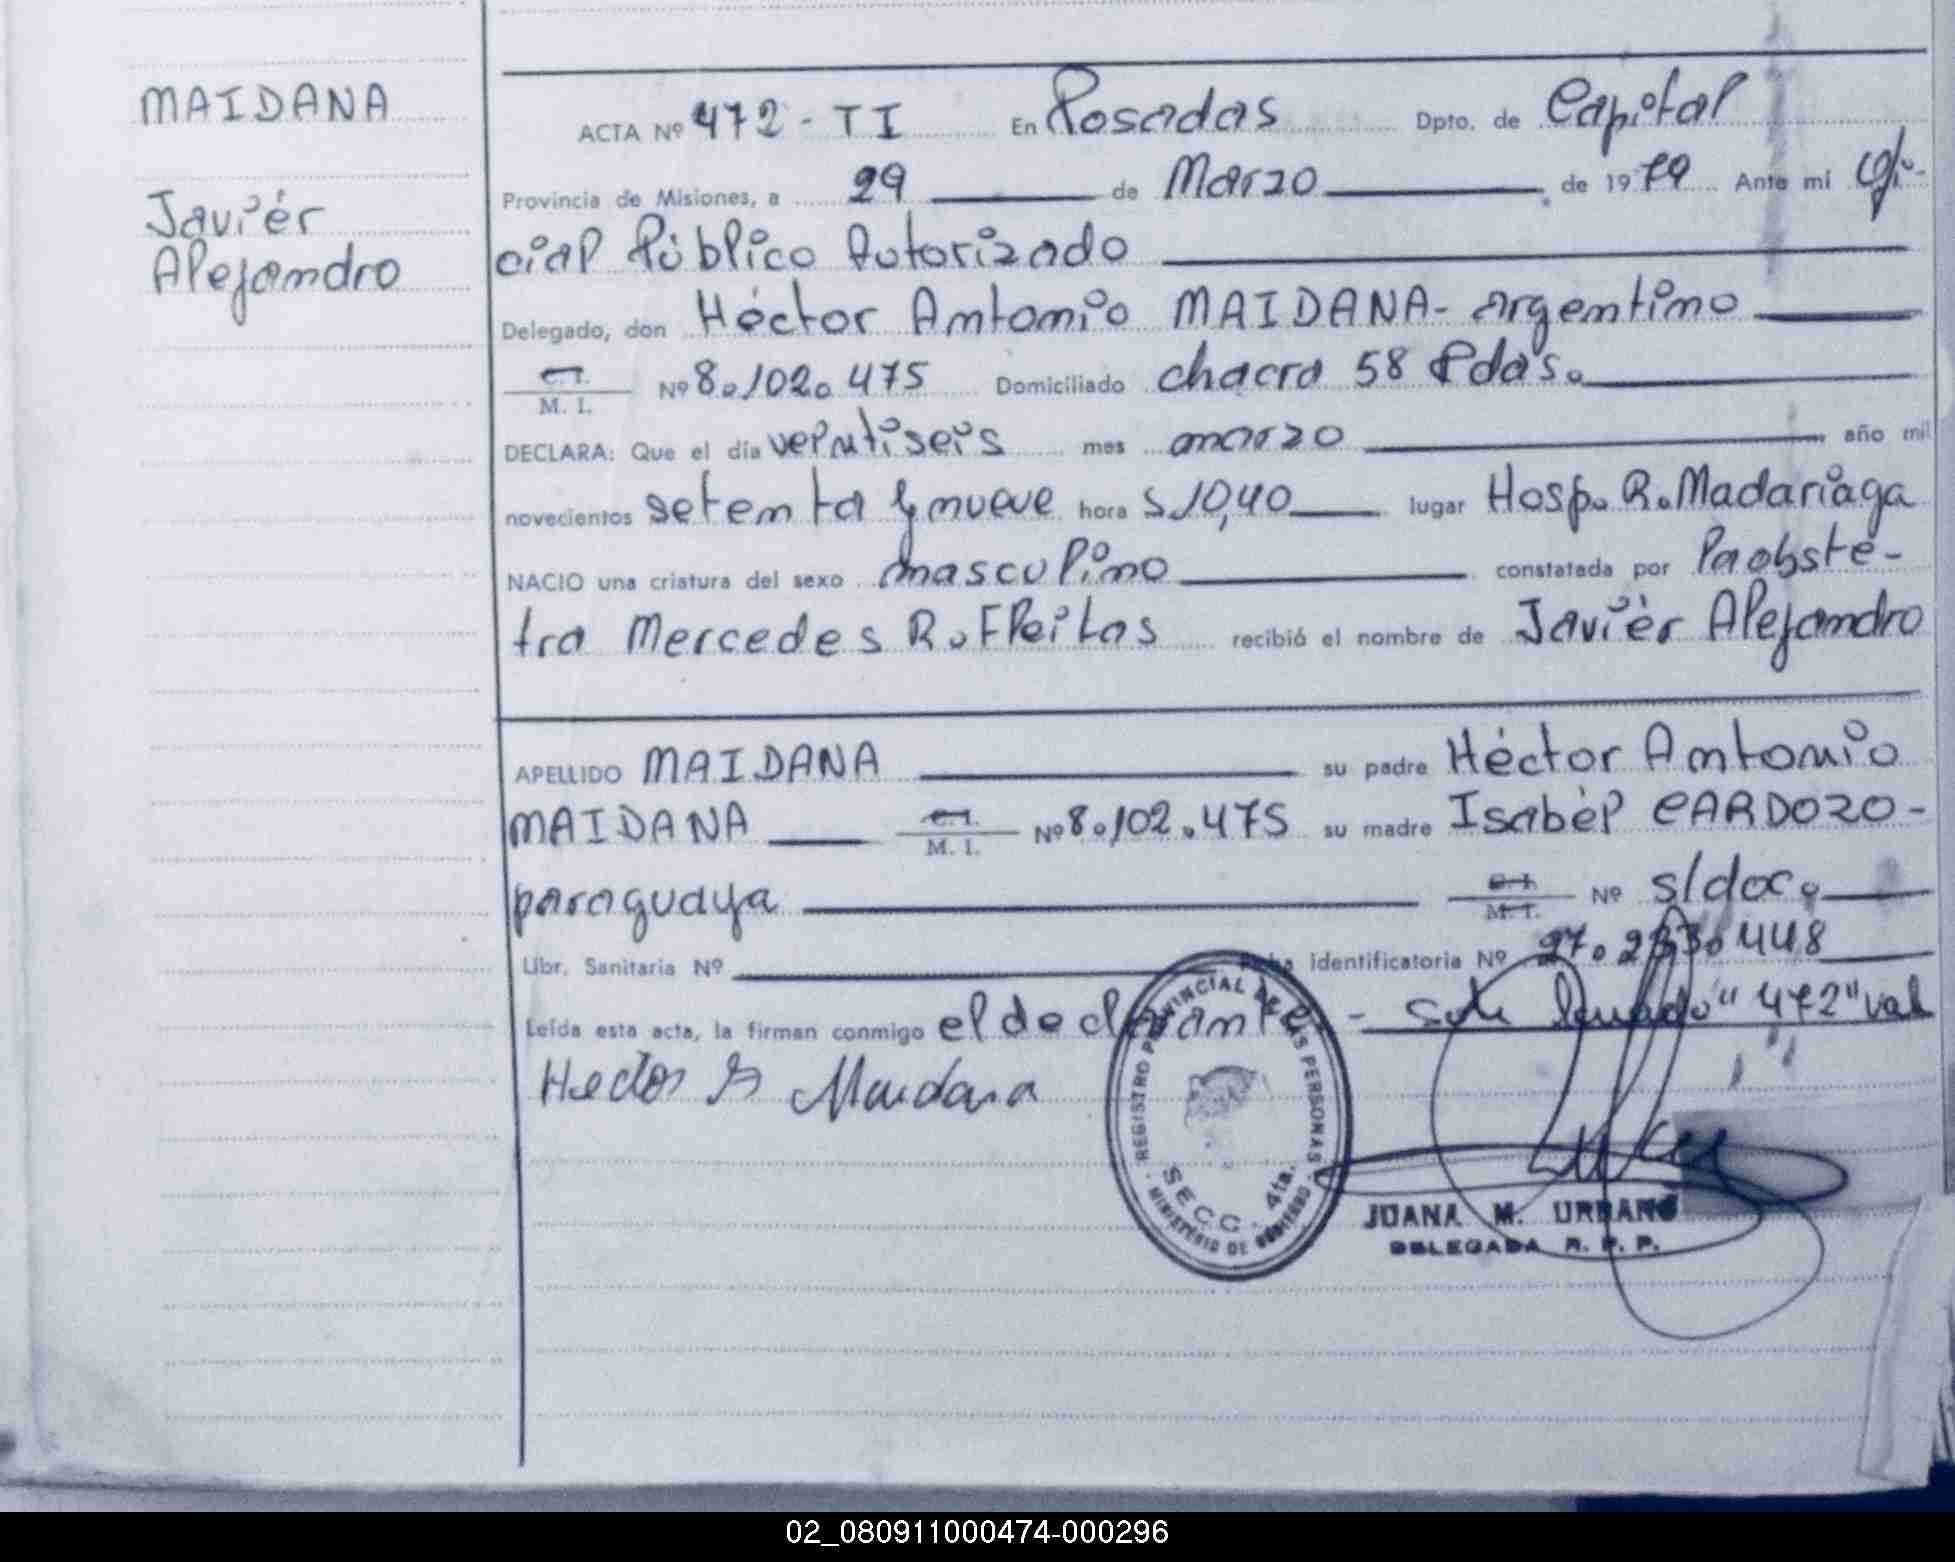 MAIDANA
Javiér
Alejandro
ACTA Nº 472 - TI En Posadas Dpto. de Capital
Provincia de Misiones, a 29 de Marzo de 1979 Ante mi Ofi-
cial Público Autorizado
Delegado, don Héctor Antonio MAIDANA - argentino
C.I.
M. I. Nº 8.102.475 Domiciliado chacra 58 Pdas.
DECLARA: Que el día veintiseis mes marzo año mil
novecientos setenta y nueve hora s 10,40 lugar Hosp. R. Madariaga
NACIO una criatura del sexo masculino constatada por la obsté-
tra Mercedes R. Fleitas recibió el nombre de Javiér Alejandro
APELLIDO MAIDANA su padre Héctor Antonio
MAIDANA C.I.
M. I. Nº 8.102.475 su madre Isabél CARDOZO -
paraguaya C.I.
M. I. Nº s/doc.
Libr. Sanitaria Nº Ficha identificatoria Nº 27.233.448
Leída esta acta, la firman conmigo el declarante - "472" vale
Hector A Maidana
REGISTRO PROVINCIAL DE LAS PERSONAS
SECC. 4ta.
MINISTERIO DE GOBIERNO
JUANA M. URBANO
DELEGADA R. P. P.
02_080911000474-000296